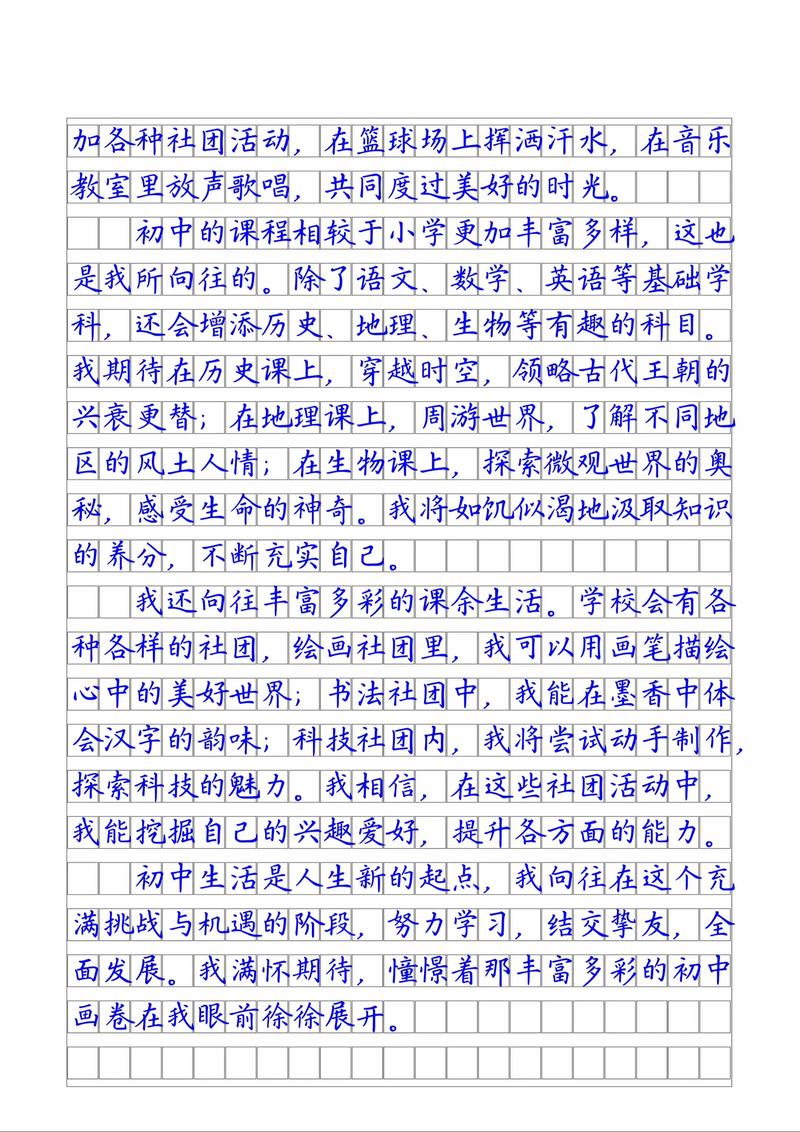 加各种社团活动，在篮球场上挥洒汗水，在音乐
教室里放声歌唱，共同度过美好的时光。
初中的课程相较于小学更加丰富多样，这也
是我所向往的。除了语文、数学、英语等基础学
科，还会增添历史、地理、生物等有趣的科目。
我期待在历史课上，穿越时空，领略古代王朝的
兴衰更替；在地理课上，周游世界，了解不同地
区的风土人情；在生物课上，探索微观世界的奥
秘，感受生命的神奇。我将如饥似渴地汲取知识
的养分，不断充实自己。
我还向往丰富多彩的课余生活。学校会有各
种各样的社团，绘画社团里，我可以用画笔描绘
心中的美好世界；书法社团中，我能在墨香中体
会汉字的韵味；科技社团内，我将尝试动手制作，
探索科技的魅力。我相信，在这些社团活动中，
我能挖掘自己的兴趣爱好，提升各方面的能力。
初中生活是人生新的起点，我向往在这个充
满挑战与机遇的阶段，努力学习，结交挚友，全
面发展。我满怀期待，憧憬着那丰富多彩的初中
画卷在我眼前徐徐展开。